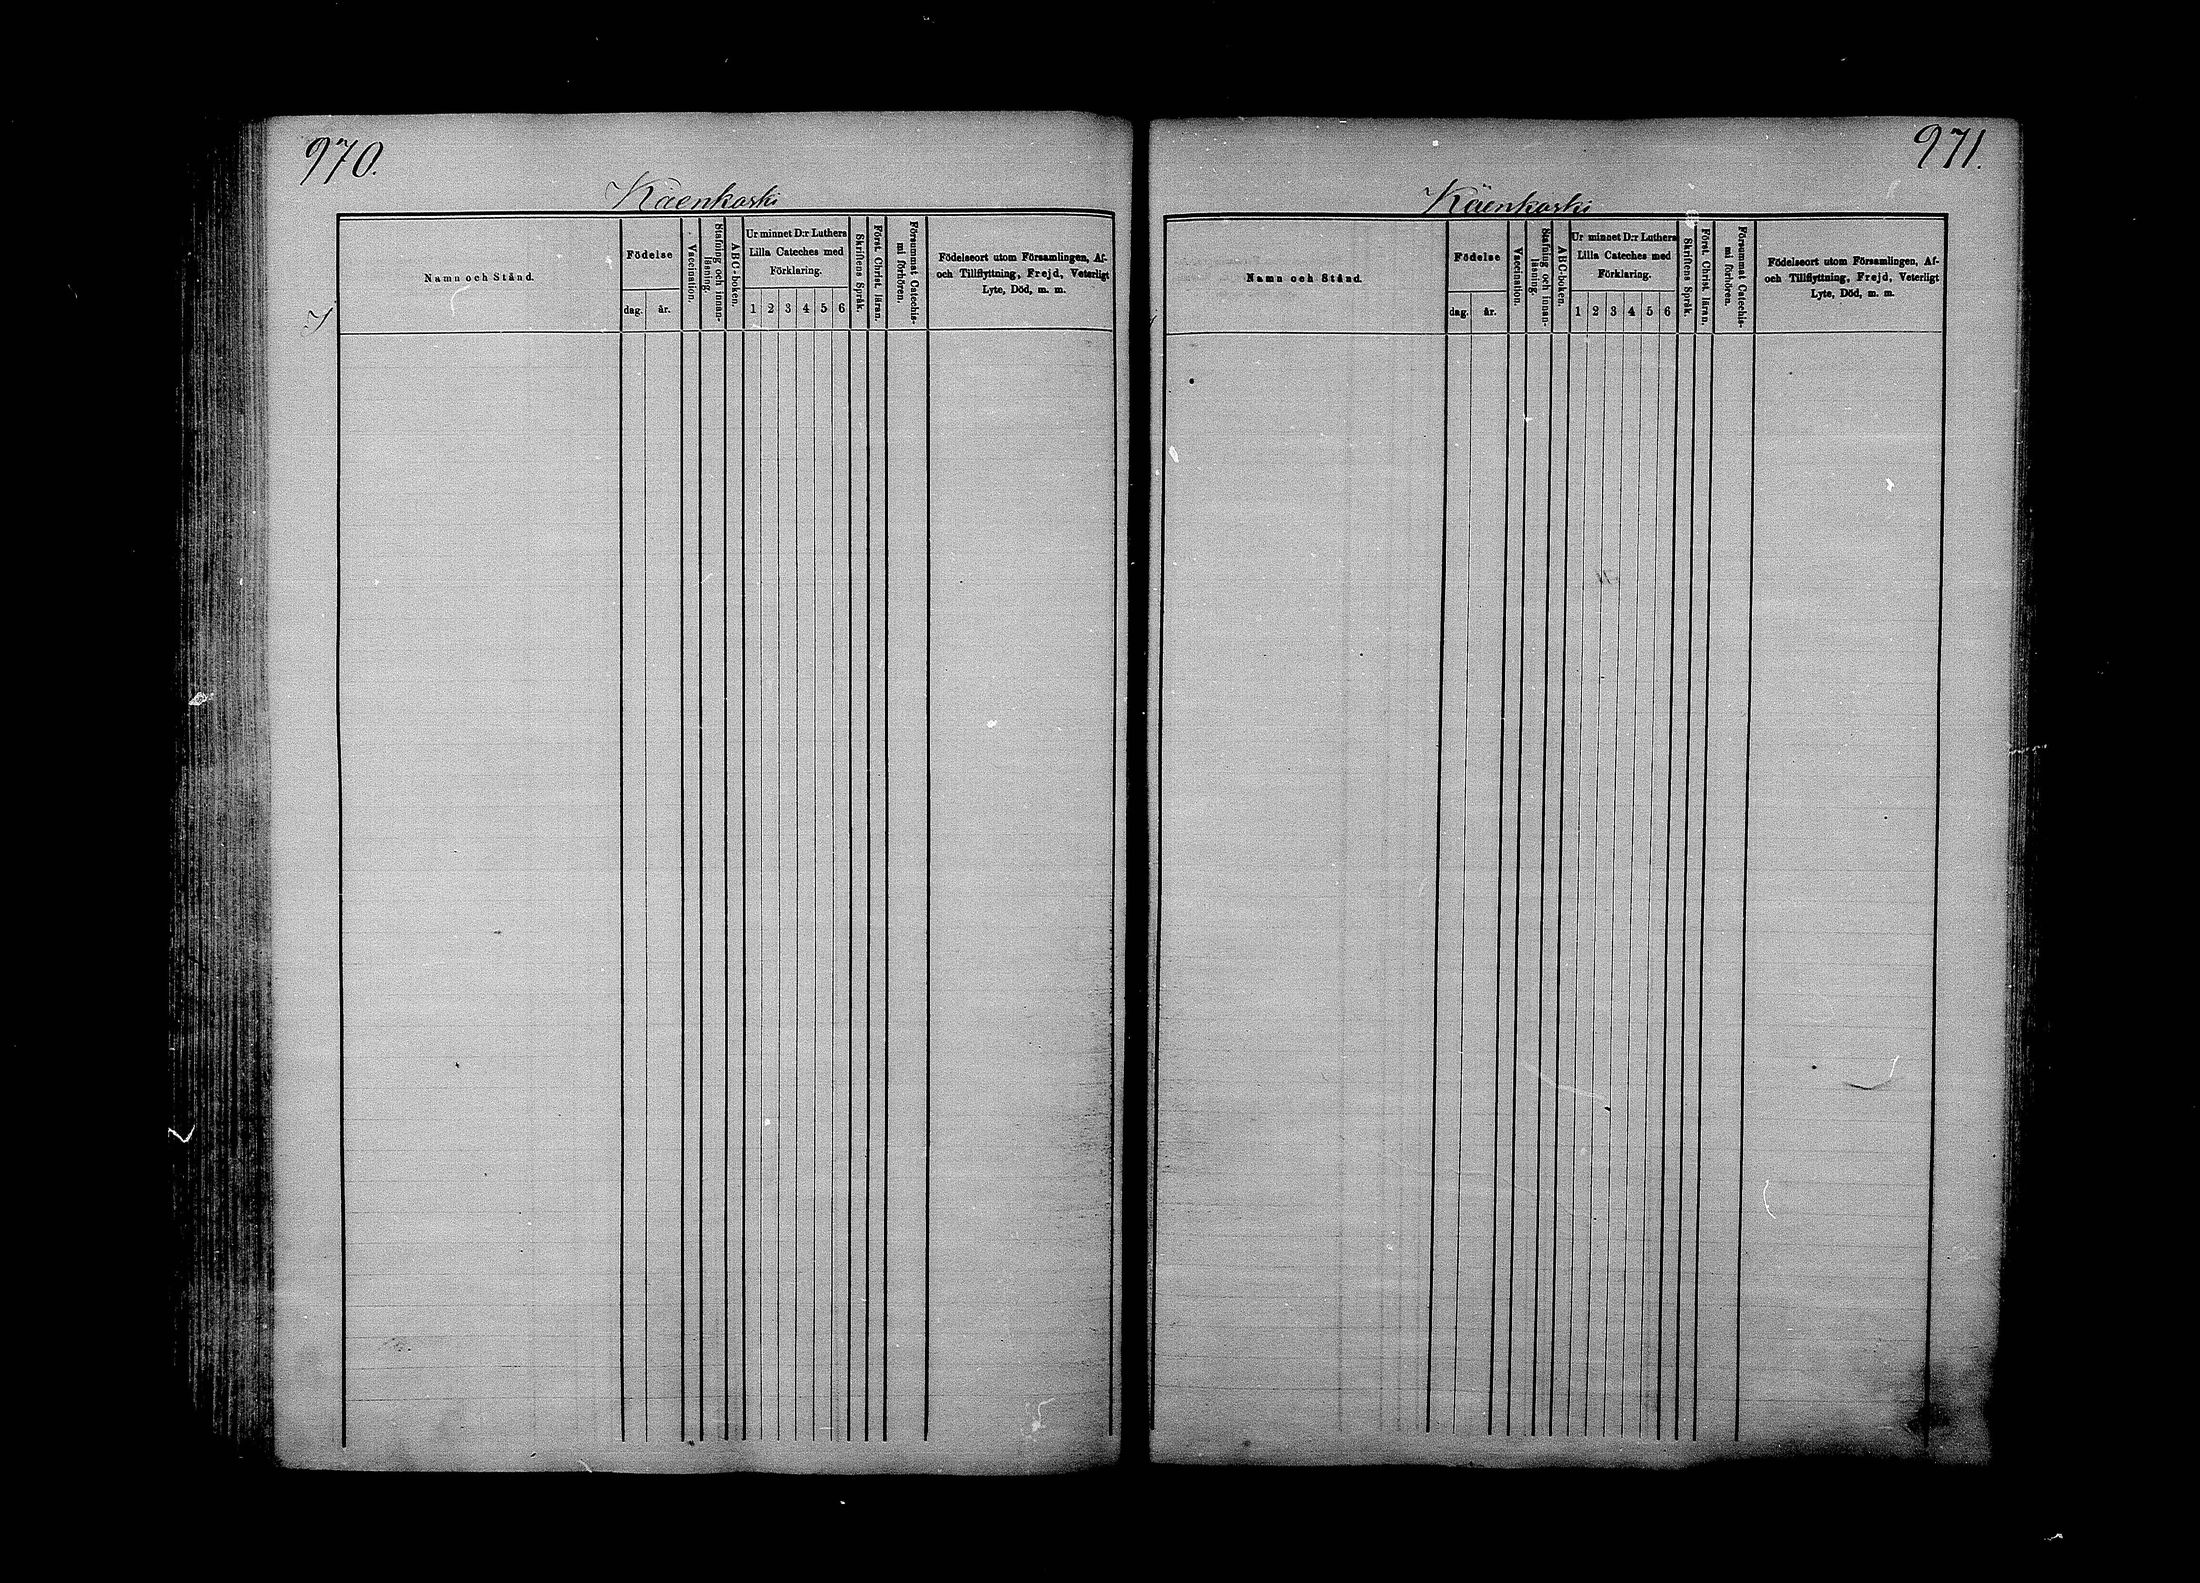 970.
Käenkoski
Namn och Stånd.
Födelse
dag.
år.
Vaccination.
Stafning och innan-
läsning.
ABC-boken.
Ur minnet D:r Luthers
Lilla Cateches med
Förklaring.
1 2 3 4 5 6
Skriftens Språk.
Först. Christ. läran.
Försummat Catechis-
mi förhören.
Födelseort utom Församlingen, Af-
och Tillflyttning, Frejd, Veterligt
Lyte, Död, m. m.
971.
Käenkoski
Namn och Stånd.
Födelse
dag.
år.
Vaccination.
Stafning och innan-
läsning.
ABC-boken.
Ur minnet D:r Luthers
Lilla Cateches med
Förklaring.
1 2 3 4 5 6
Skriftens Språk.
Först. Christ. läran.
Försummat Catechis-
mi förhören.
Födelseort utom Församlingen, Af-
och Tillflyttning, Frejd, Veterligt
Lyte, Död, m. m.